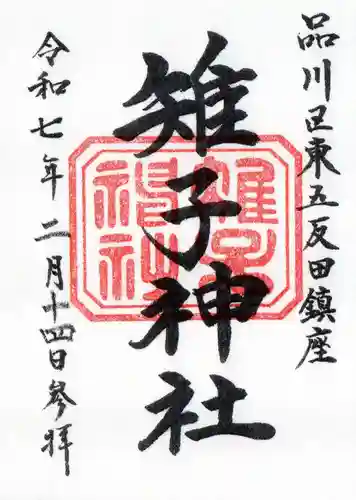 品川区東五反田鎮座
雉子神社
令和七年二月十四日参拝